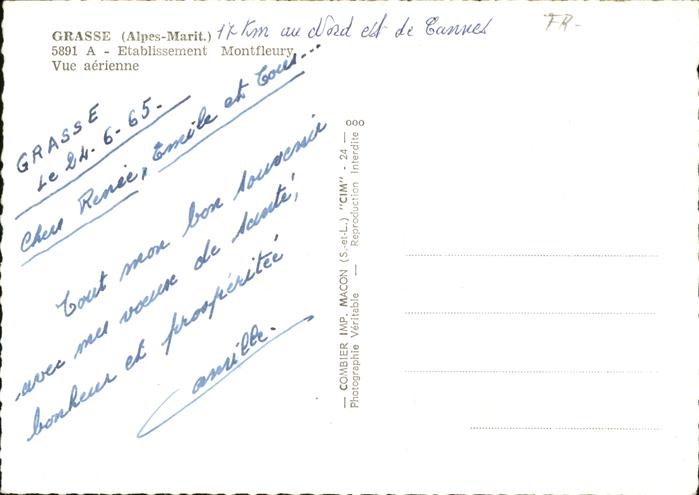 GRASSE (Alpes-Marit.) 17 Km au Nord est de Cannes
5891 A - Etablissement Montfleury
Vue aérienne
FR-
GRASSE
Le 24-6-65-
Chers Renée, Emile et Tous...
Tout mon bon souvenir
avec mes vœux de santé,
bonheur et prospéritée
Camille.
— COMBIER IMP. MACON (S.-et-L.) "CIM" - 24 — 000
Photographie Véritable — Reproduction Interdite